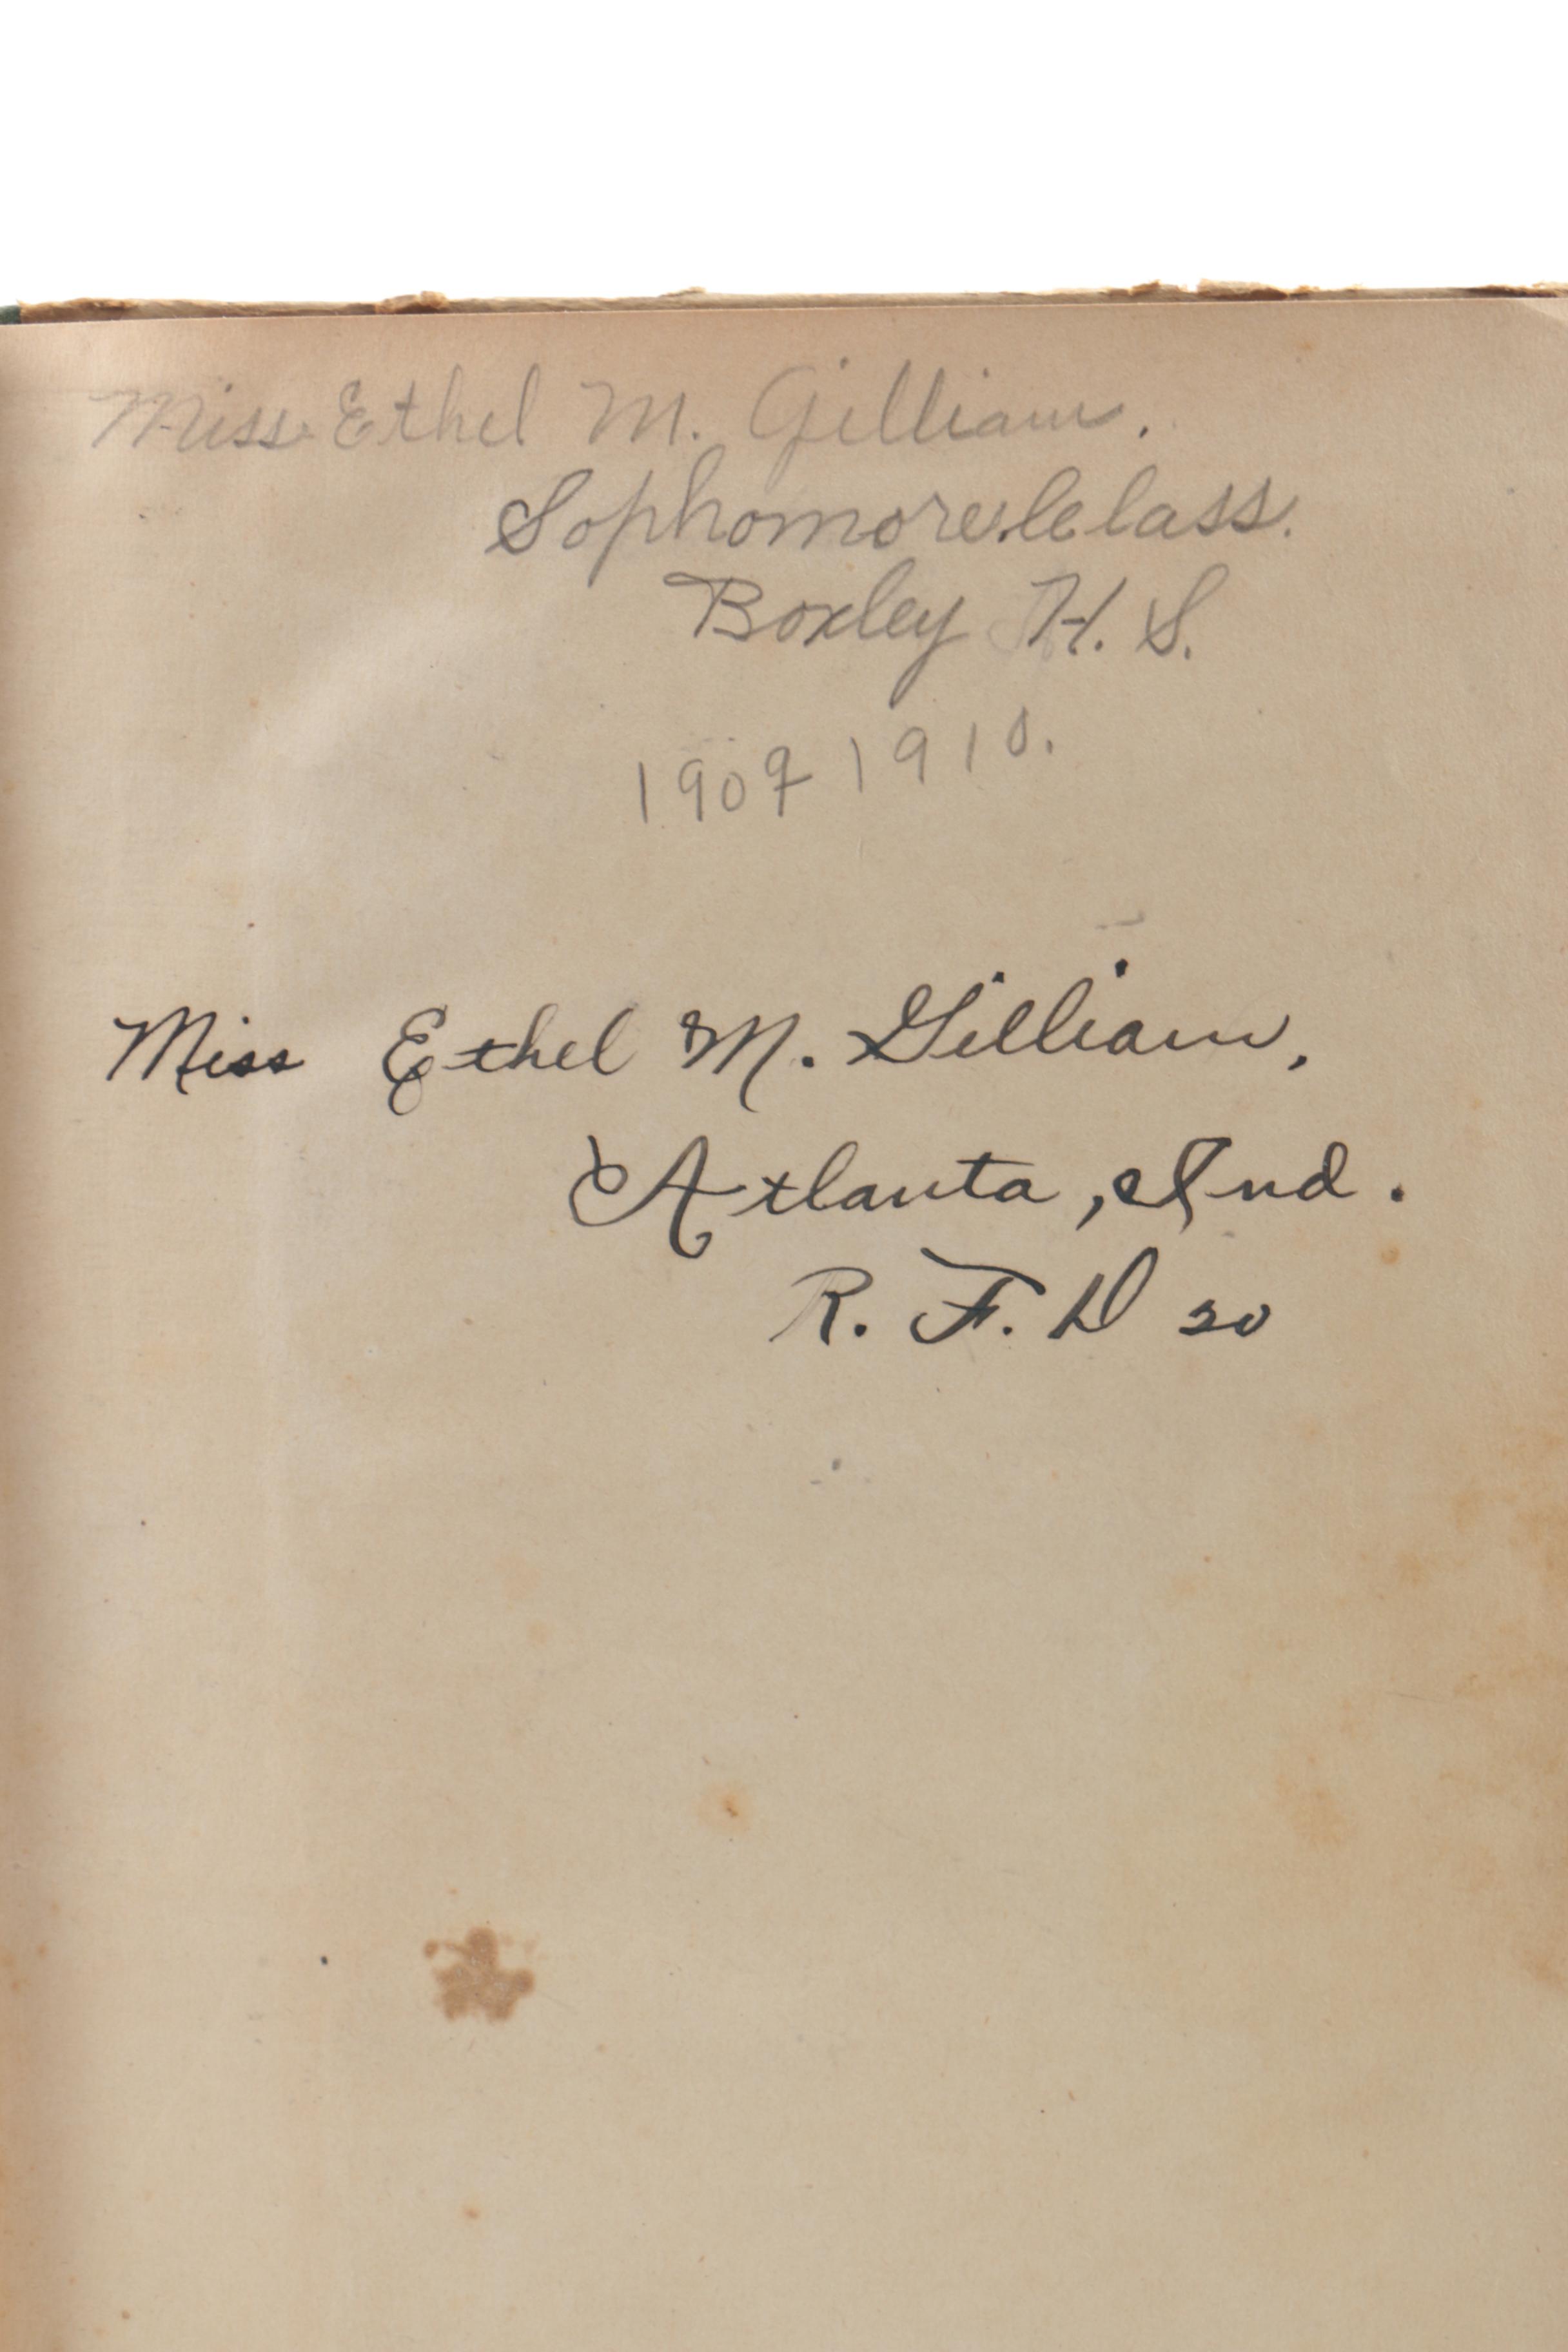 Miss Ethel M. Gilliam.
Sophomore Class.
Boxley H. S.
1909 1910.
Miss Ethel M. Gilliam,
Atlanta, Ind.
R. F. D 20